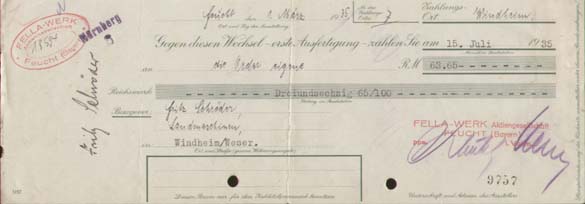 FELLA-WERK
Feucht Bay.
Nürnberg
Feucht den 1. März 1935
Ort und Tag der Ausstellung
7
Zahlungs-
Ort Windheim
Gegen diesen Wechsel - erste Ausfertigung - zahlen Sie am 15. Juli 1935
an die Order eigene RM 63.65
Reichsmark Dreiundsechzig 65/100
Bezogener Fritz Schröder,
Landmaschinen,
Windheim/Weser.
Fritz Schröder
FELLA-WERK Aktiengesellschaft
FEUCHT (Bayern)
ppa.
9757
Unterschrift und Adresse des Ausstellers